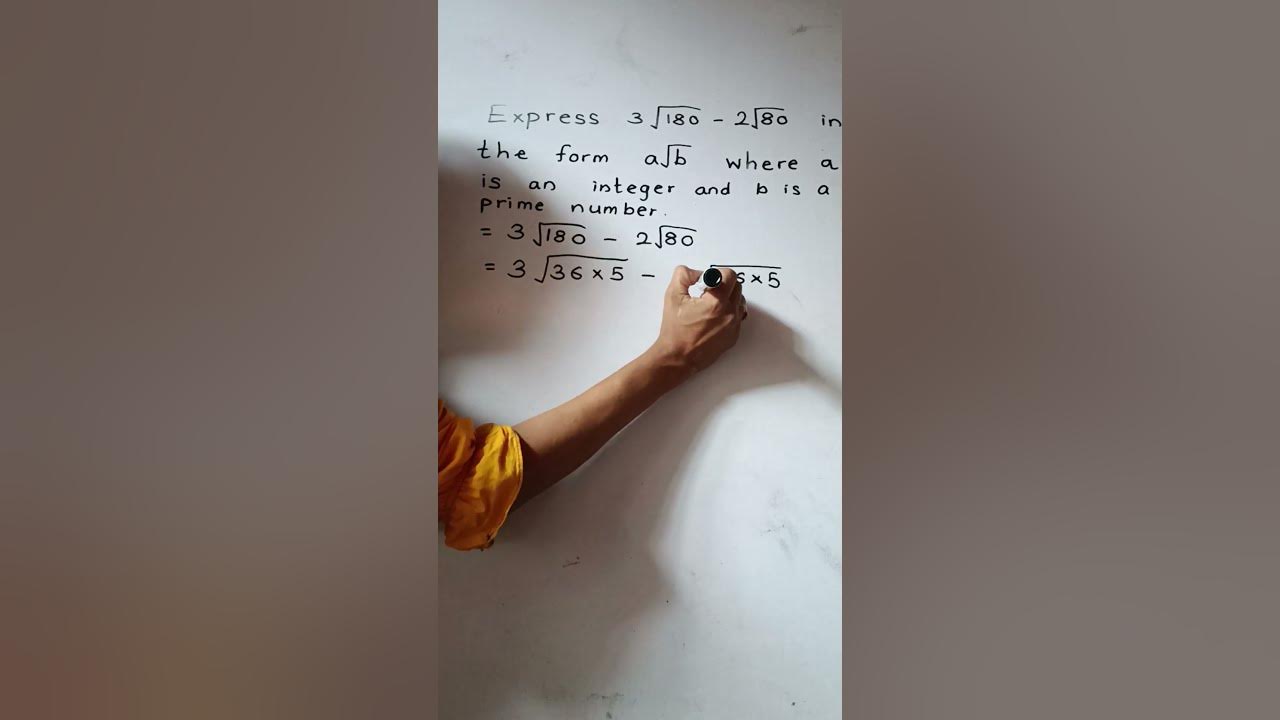 Express 3√180 - 2√80 in
the form a√b where a
is an integer and b is a
prime number.
= 3√180 - 2√80
= 3√36×5 - 6×5